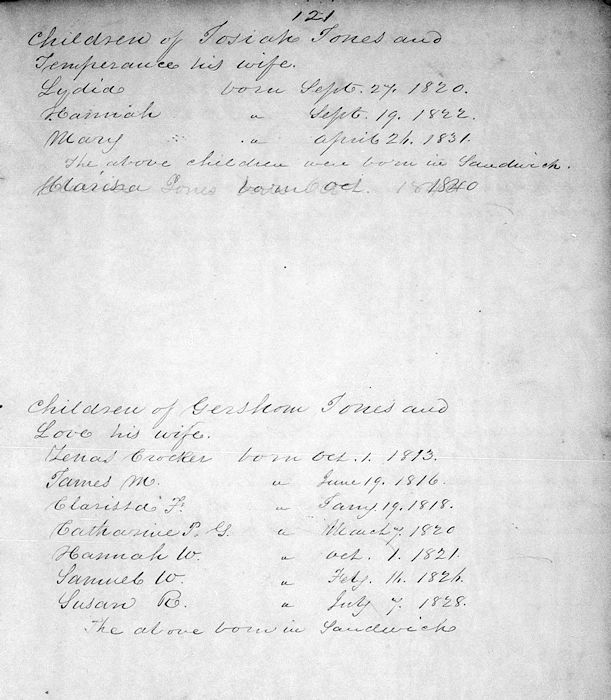 121
Children of Josiah Jones and
Temperance his wife.
Lydia born Sept. 27. 1820.
Hannah " Sept. 19. 1822.
Mary " april 24. 1831.
The above children were born in Sandwich.
Clarisa Jones born Oct. 1840
Children of Gershom Jones and
Love his wife.
Zenas Crocker born Oct. 1. 1813.
James M. " June 19. 1816.
Clarissa F. " Jany 19. 1818.
Catharine P. G. " March 7. 1820
Hannah W. " Oct. 1. 1821.
Samuel W. " Feby. 14. 1824.
Susan R. " July 7. 1828.
The above born in Sandwich